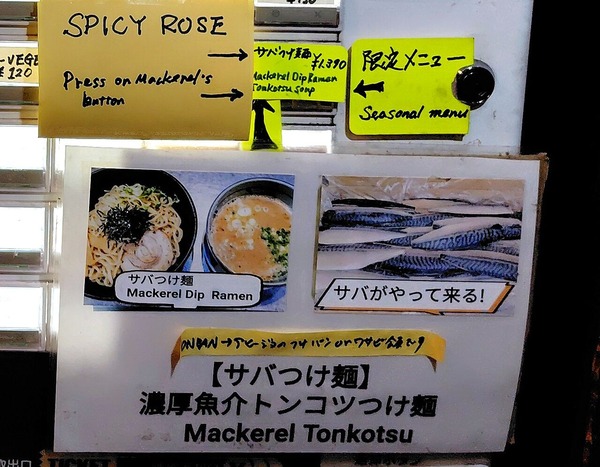 SPICY ROSE
Press on Mackerel's
button
VEGE
¥120
サバつけ麺
¥1.390
Mackerel Dip Ramen
Tonkotsu Soup
限定メニュー
Seasonal menu
サバつけ麺
Mackerel Dip Ramen
サバがやって来る!
【サバつけ麺】
濃厚魚介トンコツつけ麺
Mackerel Tonkotsu
TICKET